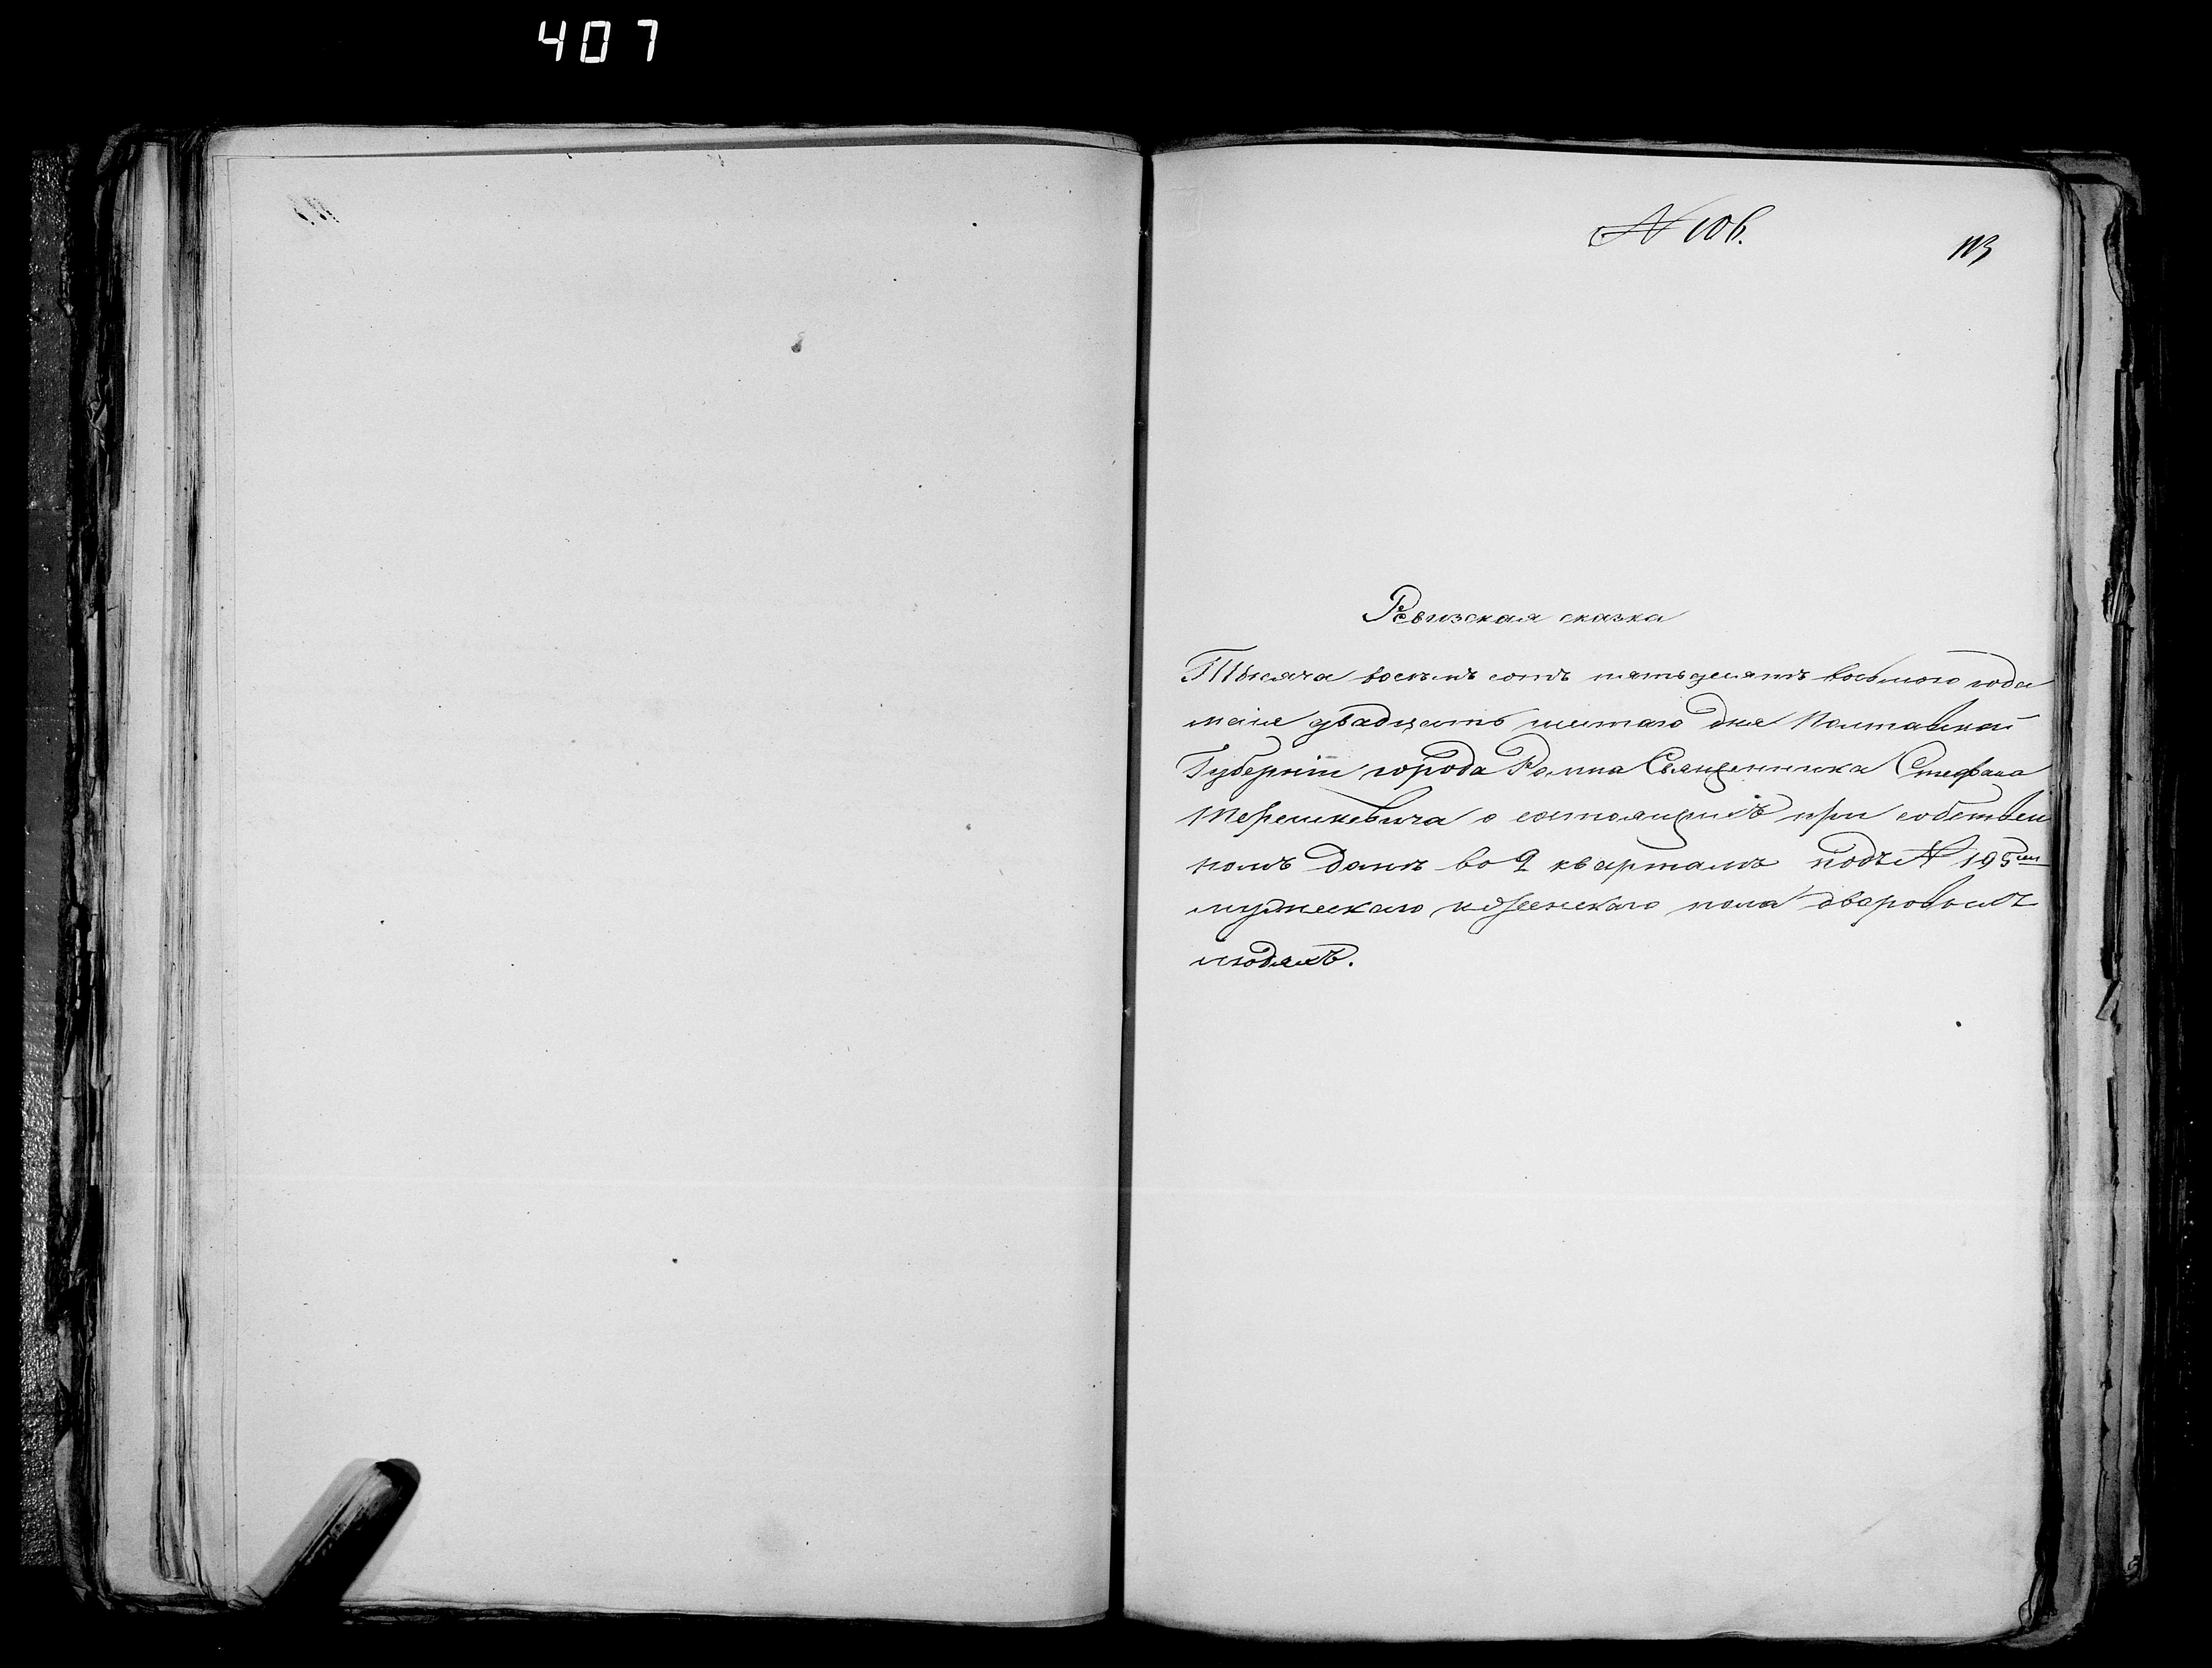 407
№ 106.
113
Ревизская сказка
Тысяча восемъ сотъ пятьдесятъ восьмого года
маія двадцать шестаго дня Полтавской
Губерніи города Ромна Священника Стефана
Терешкевича о состоящихъ при собствен
номъ домѣ во 2 кварталѣ подъ № 195мъ
мужескаго и женскаго пола дворовыхъ
людяхъ.